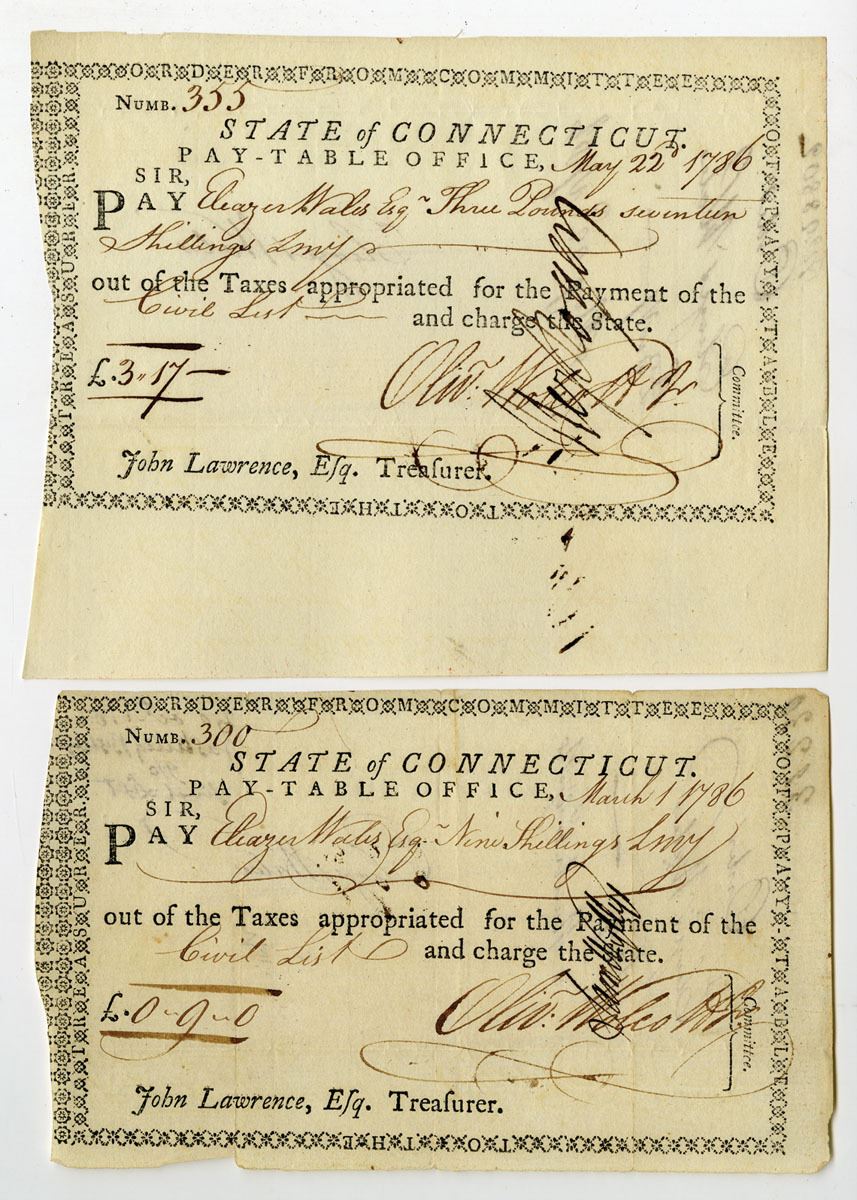 ORDER FROM COMMITTEE
OF PAY-TABLE
TO THE
TREASURER.
NUMB. 355
STATE of CONNECTICUT.
PAY-TABLE OFFICE, May 22d 1786
SIR,
PAY Eleazer Wales Esqr Three Pounds seventeen
Shillings Lmy
out of the Taxes appropriated for the Payment of the
Civil List and charge the State.
£.3"17—
Olivr. Wolcott Jr.
Committee.
John Lawrence, Eſq. Treaſurer.
ORDER FROM COMMITTEE
OF PAY-TABLE
TO THE
TREASURER.
NUMB. 300
STATE of CONNECTICUT.
PAY-TABLE OFFICE, March 1 1786
SIR,
PAY Eleazer Wales Esqr Nine Shillings Lmy
out of the Taxes appropriated for the Payment of the
Civil List and charge the State.
£.0"9"0
Olivr. Wolcott Jr.
Committee.
John Lawrence, Eſq. Treaſurer.